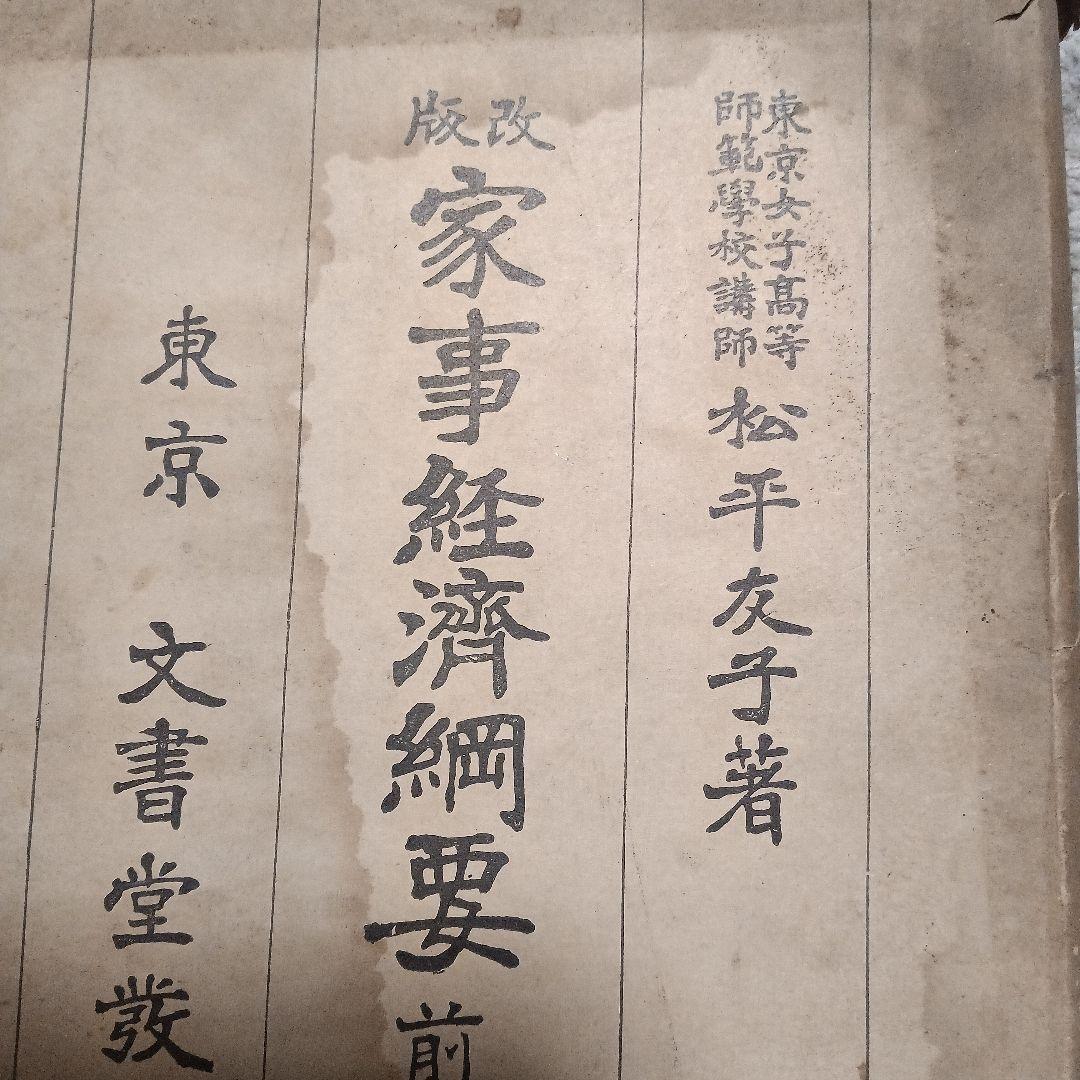 東京女子高等
師範學校講師
松平友子著
改版
家事経濟綱要 前
東京 文書堂發